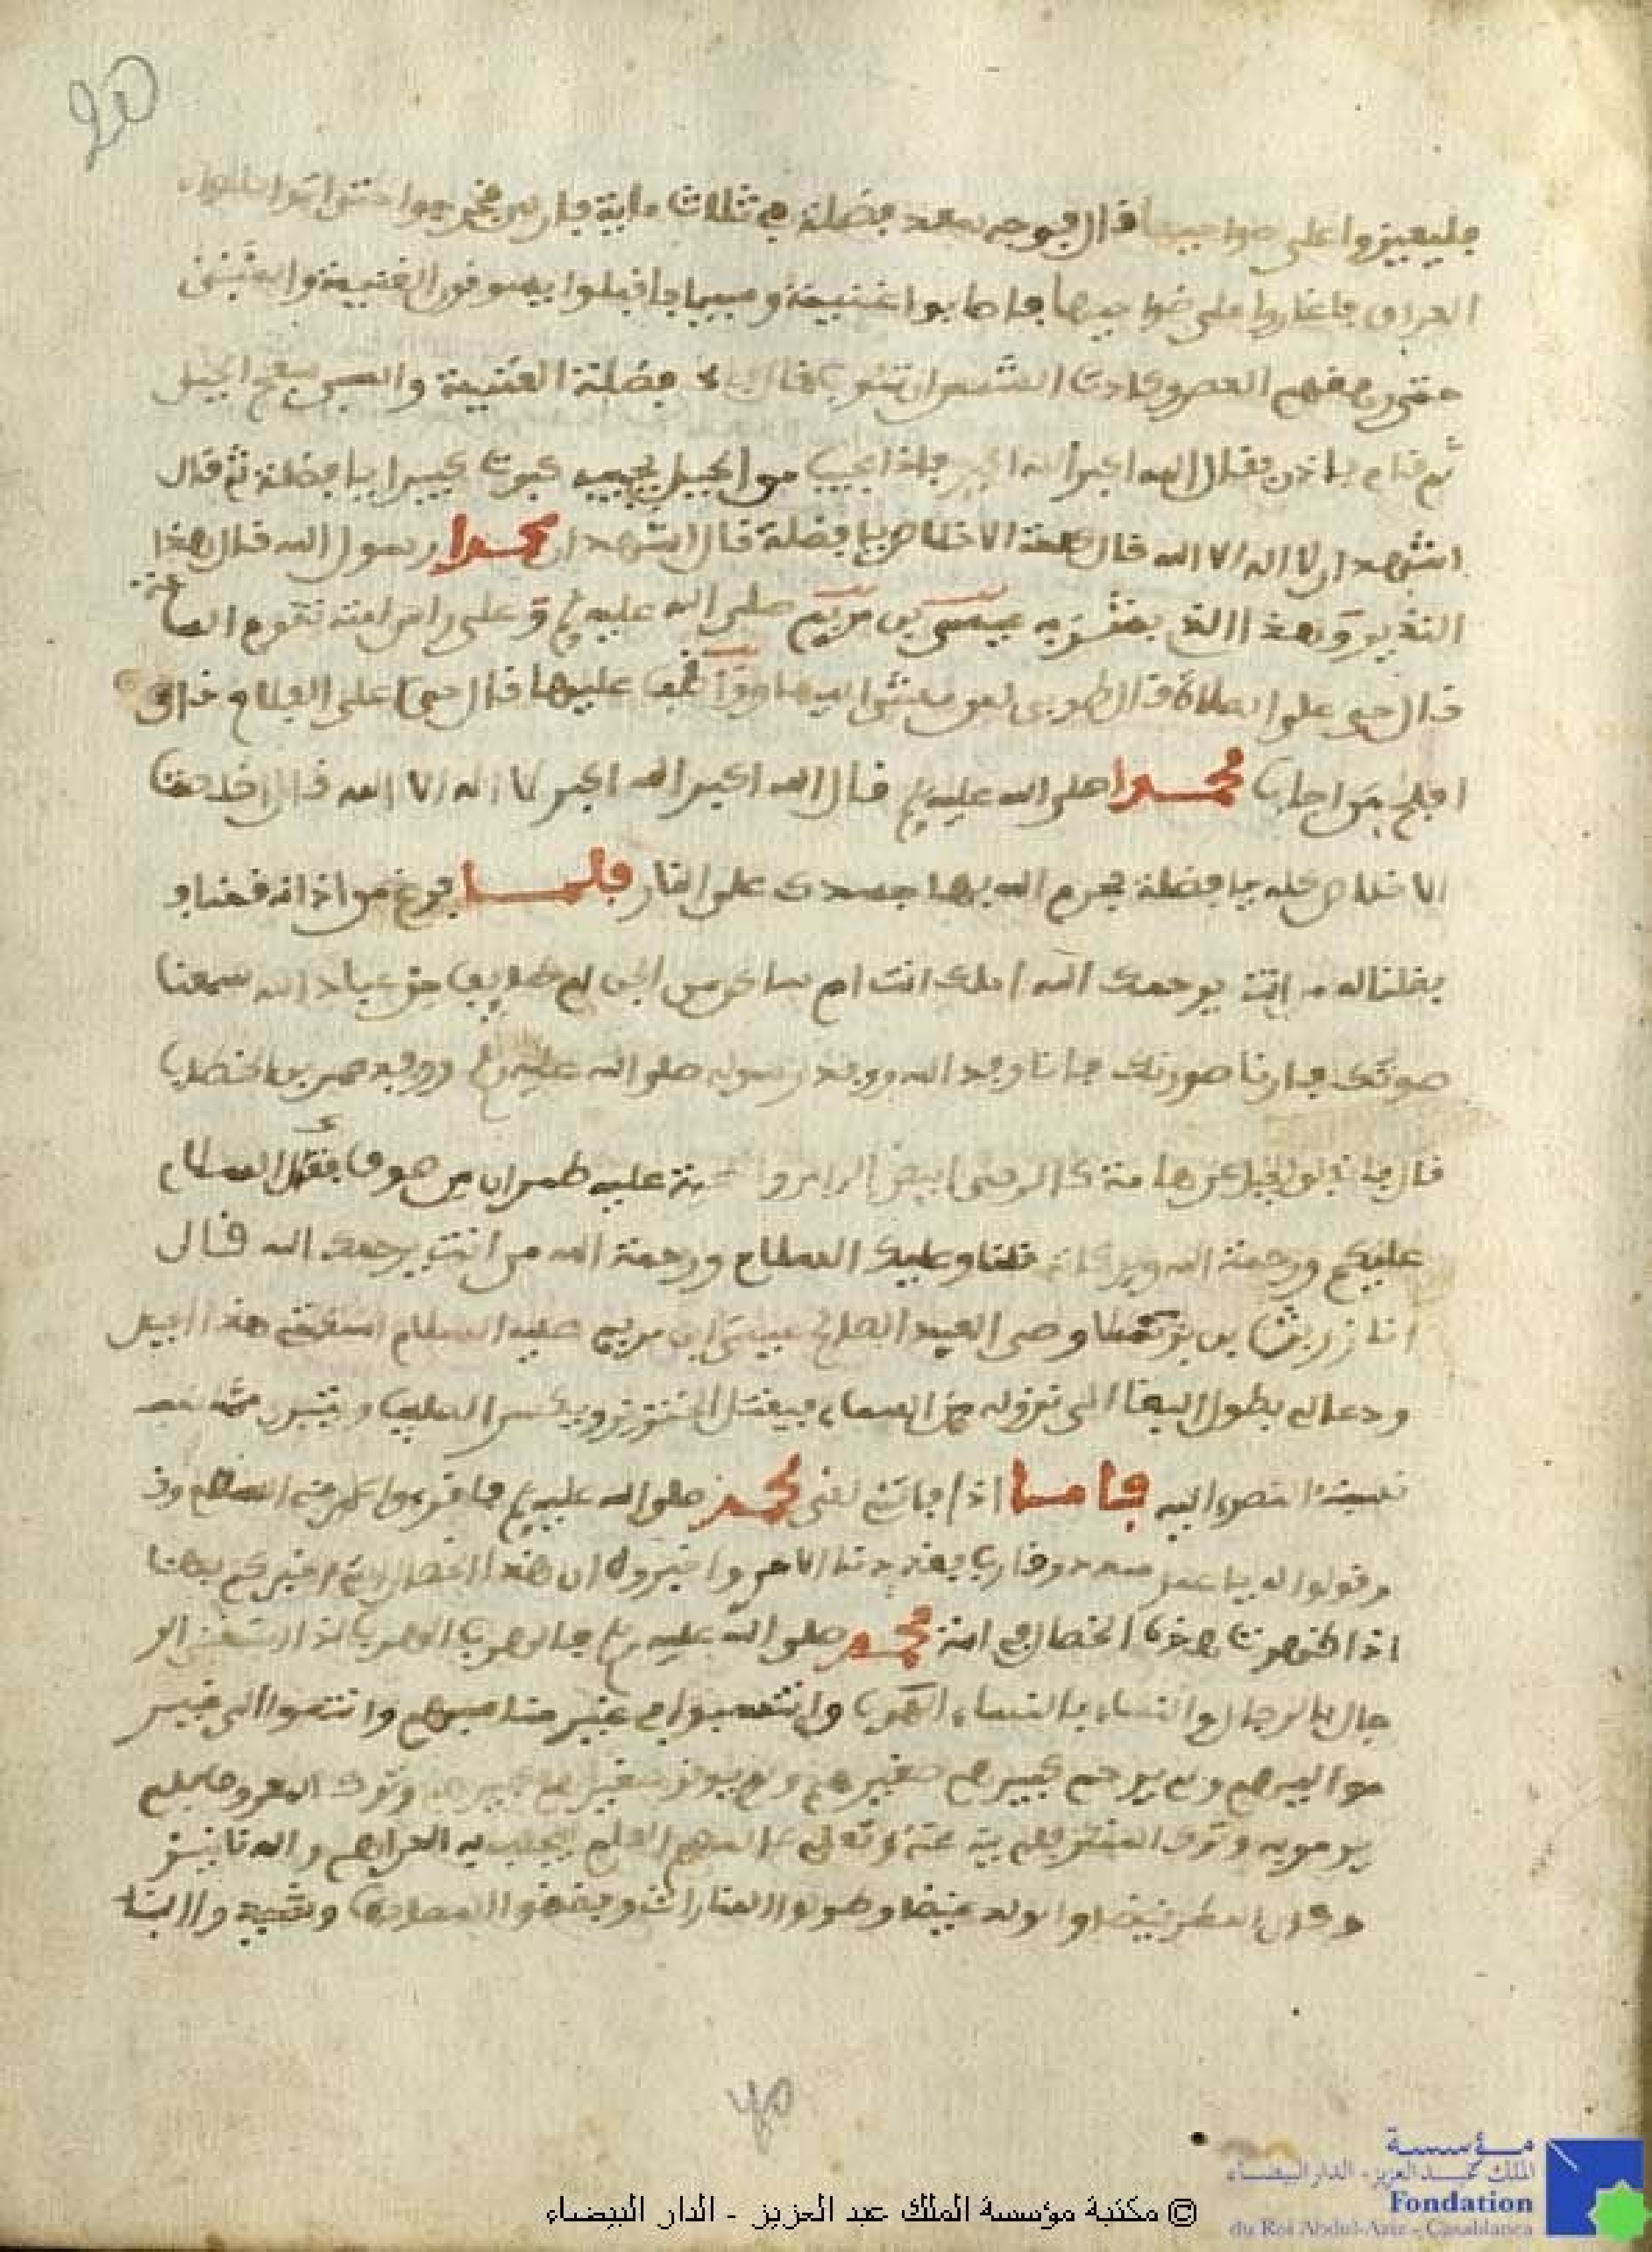 20
فليغيروا على ضواحيها قال فوجه سعد نضلة في ثلاث ماية فارس فخرجوا حتى اتوا حلوان
العراق فاغاروا على ضواحيها فاصابوا غنيمة وسبيا فاقبلوا يسوقون الغنيمة والسبي
حتى رهقهم العصر وكادت الشمس ان تغرب فالجا نضلة الغنيمة والسبي سفح الجبل
ثم قام فاذن فقال الله اكبر الله اكبر فاذا مجيب من الجبل يجيبه كبرت كبيرا يا نضلة ثم قال
اشهد ان لا اله الا الله قال كلمة الاخلاص يا نضلة قال اشهد ان محمدا رسول الله قال هذا
النذير وهذا الذي بشر به عيسى بن مريم صلى الله عليه وعلى راس امته تقوم الساعة
قال حي على الصلاة قال طوبى لمن مشى اليها وواظب عليها قال حي على الفلاح قال
افلح من اجاب محمدا صلى الله عليه قال الله اكبر الله اكبر لا اله الا الله قال اخلصت
الاخلاص كله يا نضلة فحرم الله بها جسدك على النار فلما فرغ من اذانه قمنا و
فقلنا له من انت يرحمك الله املك انت ام ساكن من الجن ام طايف من عباد الله سمعنا
صوتك فارنا صورتك فانا وفد الله ووفد رسوله صلى الله عليه ووفد عمر بن الخطاب
قال فانفلق الجبل عن هامة كالرحى ابيض الراس و عليه طمران من صوف فقال السلام
عليكم ورحمة الله وبركاته قلنا وعليك السلام ورحمة الله من انت يرحمك الله قال
انا زريث بن برثملا وصي العبد الصالح عيسى ابن مريم عليه السلام اسكنني هذا الجبل
ودعا لي بطول البقا الى نزوله من السماء فيقتل الخنزير ويكسر الصليب ويتبرا مما
النصرى اليه فاما اذا فاتني لقى محمد صلى الله عليه فاقرءوا عمر مني السلام و
وقولوا له يا عمر سدد وقارب فقد دنا الامر واخبروه ان هذه الخصال التي اخبركم بها
اذا ظهرت هذه الخصال في امة محمد صلى الله عليه فالهرب الهرب اذا استغنى الر
جال بالرجال والنساء بالنساء وانتسبوا في غير مناسبهم وانتموا الى غير
مواليهم ولم يرحم كبيرهم صغيرهم ولم يوقر صغيرهم كبيرهم وترك المعروف فلم
يومر به وترك المنكر فلم ينه عنه وتعلم عالمهم العلم ليجلب به الدراهم والدنانير
وكان المطر قيضا والولد غيضا وطولوا المنارات وفضضوا المصاحف وشيدوا البنا
40
© مكتبة مؤسسة الملك عبد العزيز - الدار البيضاء
مؤسسة
الملك عبد العزيز - الدار البيضاء
Fondation
du Roi Abdul-Aziz - Casablanca